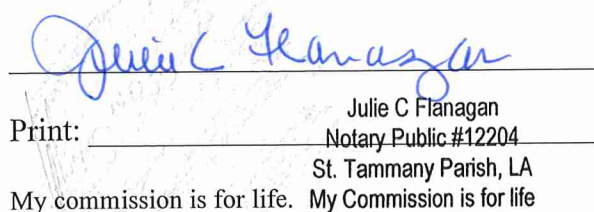 Julie C Flanagan
Julie C Flanagan
Print: Notary Public #12204
St. Tammany Parish, LA
My commission is for life. My Commission is for life